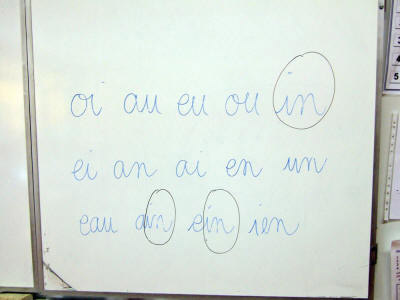 oi au eu ou in
ei an ai en un
eau ain ein ien